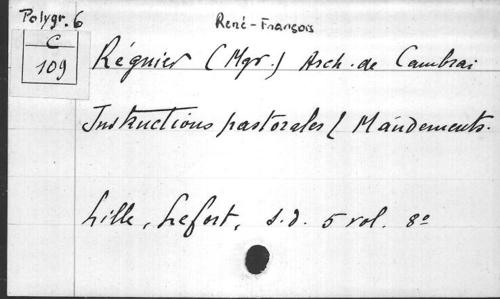 Polygr. 6
C
109
René-François
Régnier (Mgr.) Arch. de Cambrai
Instructions pastorales / Mandements.
Lille, Lefort, s.d. 5 vol. 8º